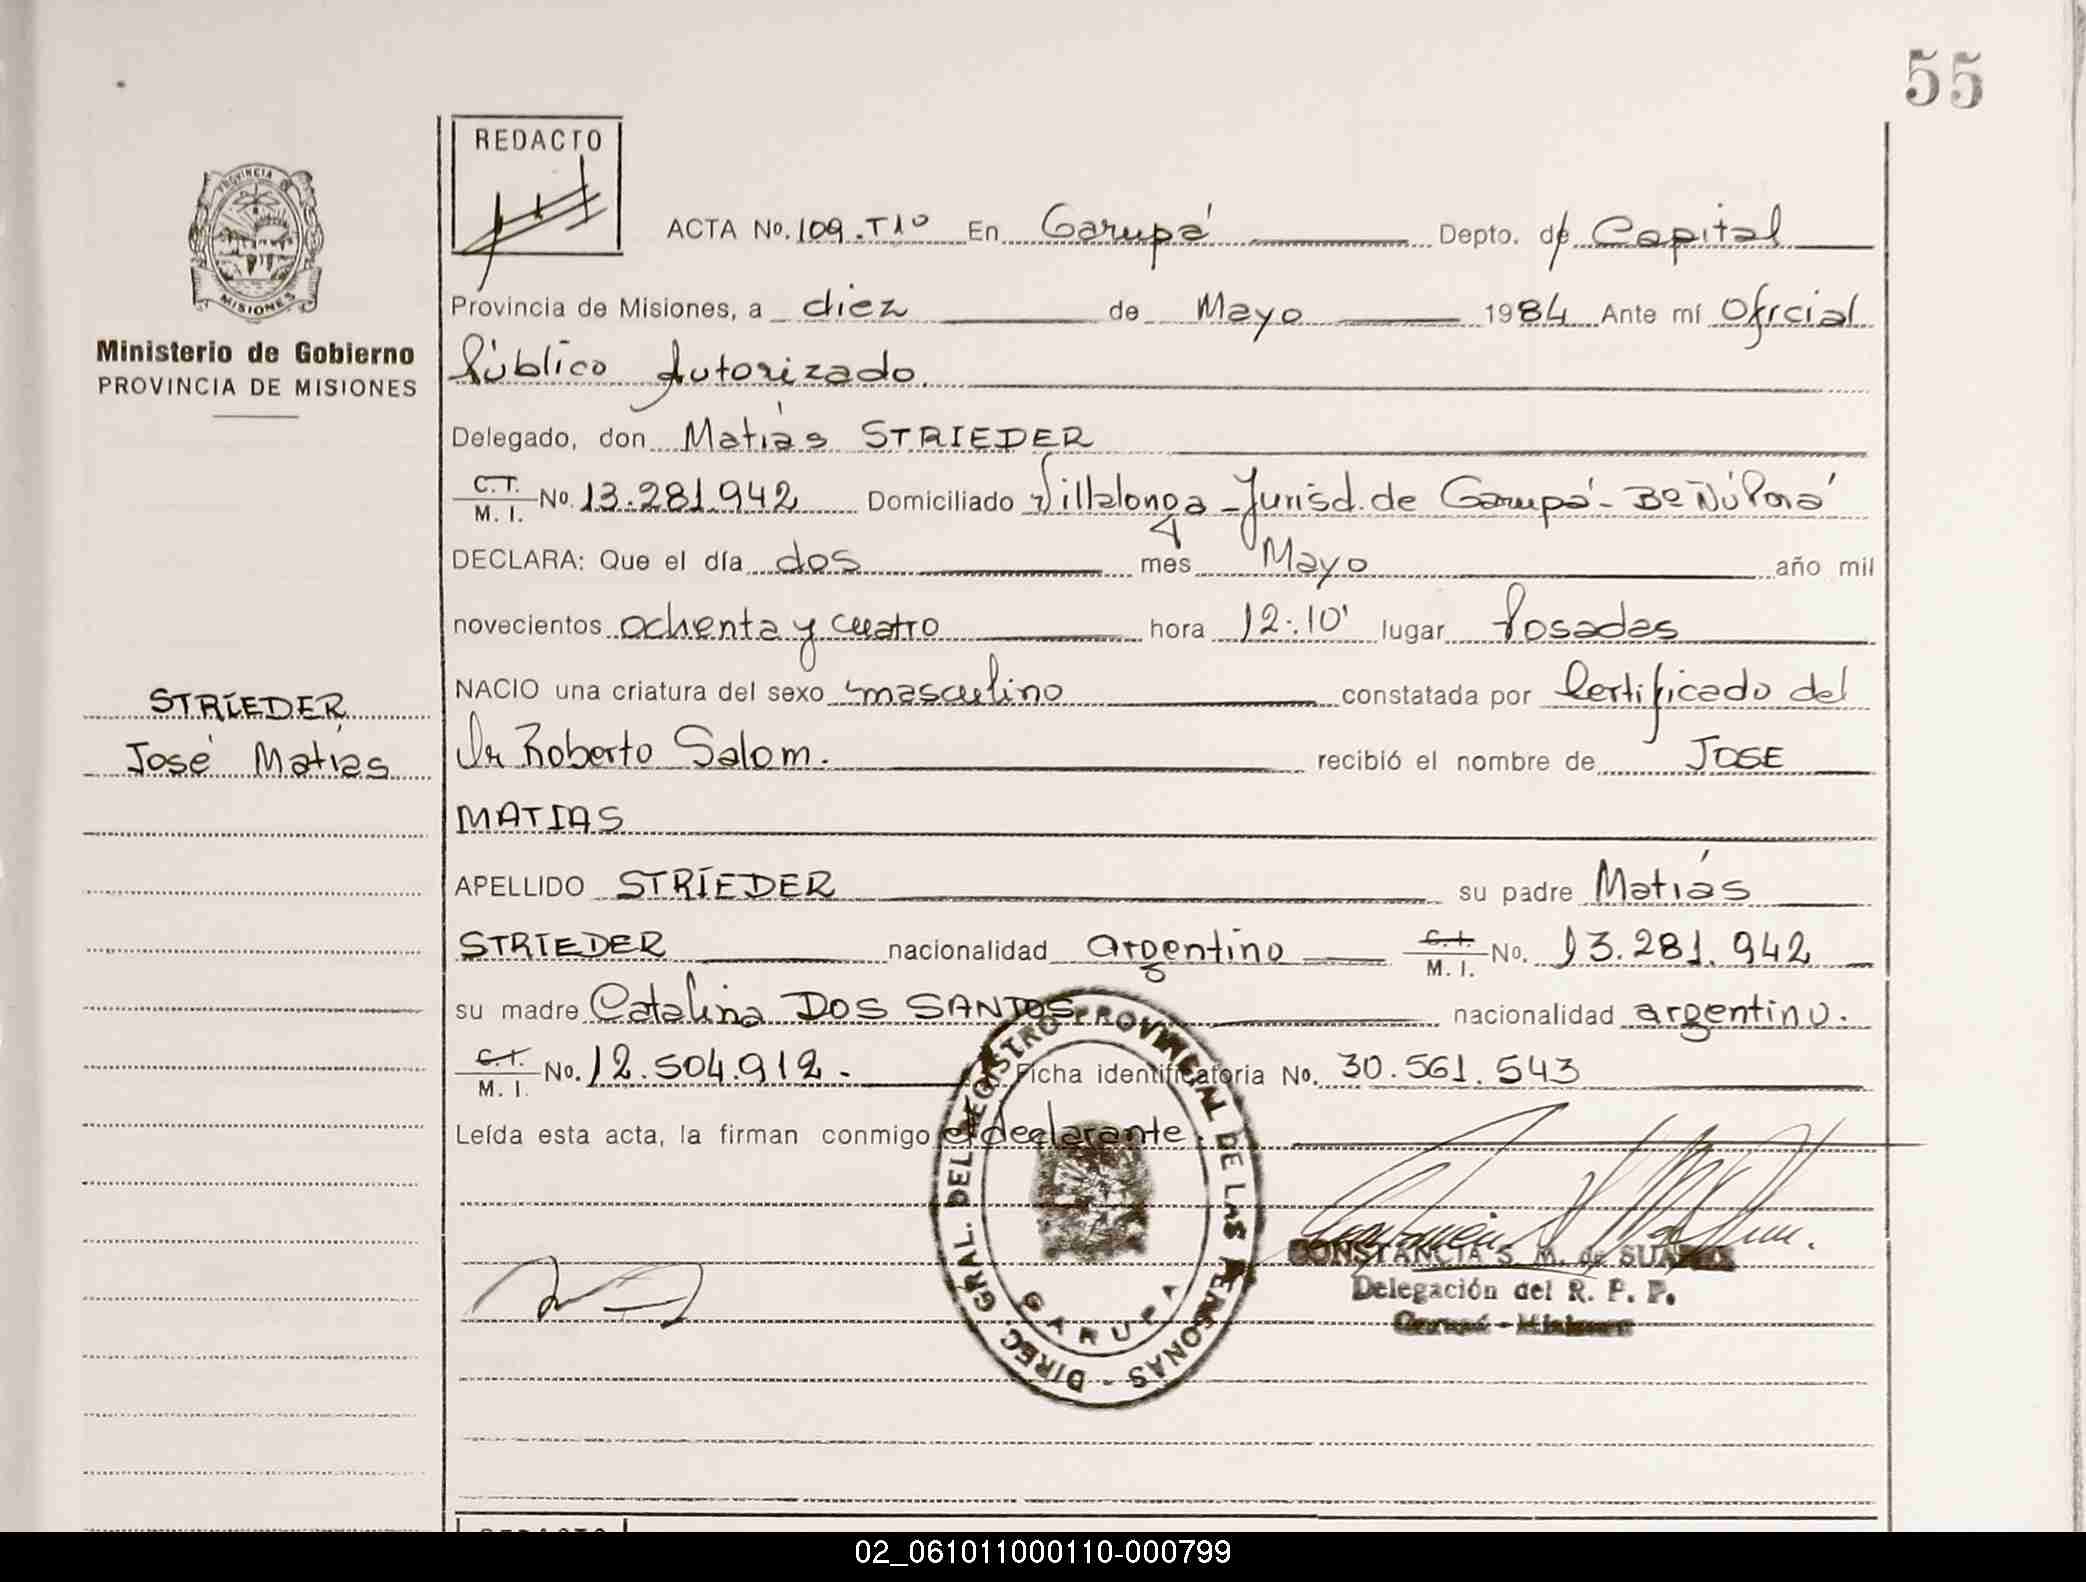 55
REDACTO
ACTA No. 109.T1º En Garupá Depto. de Capital
PROVINCIA DE
MISIONES
Provincia de Misiones, a diez de Mayo 1984 Ante mí Oficial
Ministerio de Gobierno
PROVINCIA DE MISIONES
Público Autorizado
Delegado, don Matías STRIEDER
C.I. M. I. No. 13.281.942 Domiciliado Villalonga - Jurisd. de Garupá - Bº Ñú Porá
DECLARA: Que el día dos mes Mayo año mil
novecientos ochenta y cuatro hora 12:10' lugar Posadas
NACIO una criatura del sexo masculino constatada por Certificado del
STRIEDER
José Matías
Dr Roberto Salom. recibió el nombre de JOSE
MATIAS
APELLIDO STRIEDER su padre Matías
STRIEDER nacionalidad argentino C.I. M. I. No. 13.281.942
su madre Catalina DOS SANTOS nacionalidad argentino.
C.I. M. I. No. 12.504.912. Ficha identificatoria No. 30.561.543
Leída esta acta, la firman conmigo el declarante.
DIREC. GRAL. DEL REGISTRO PROVINCIAL DE LAS PERSONAS -
GARUPA
CONSTANCIA S. M. de SUAREZ
Delegación del R. P. P.
Garupá - Misiones
REDACTO
02_061011000110-000799